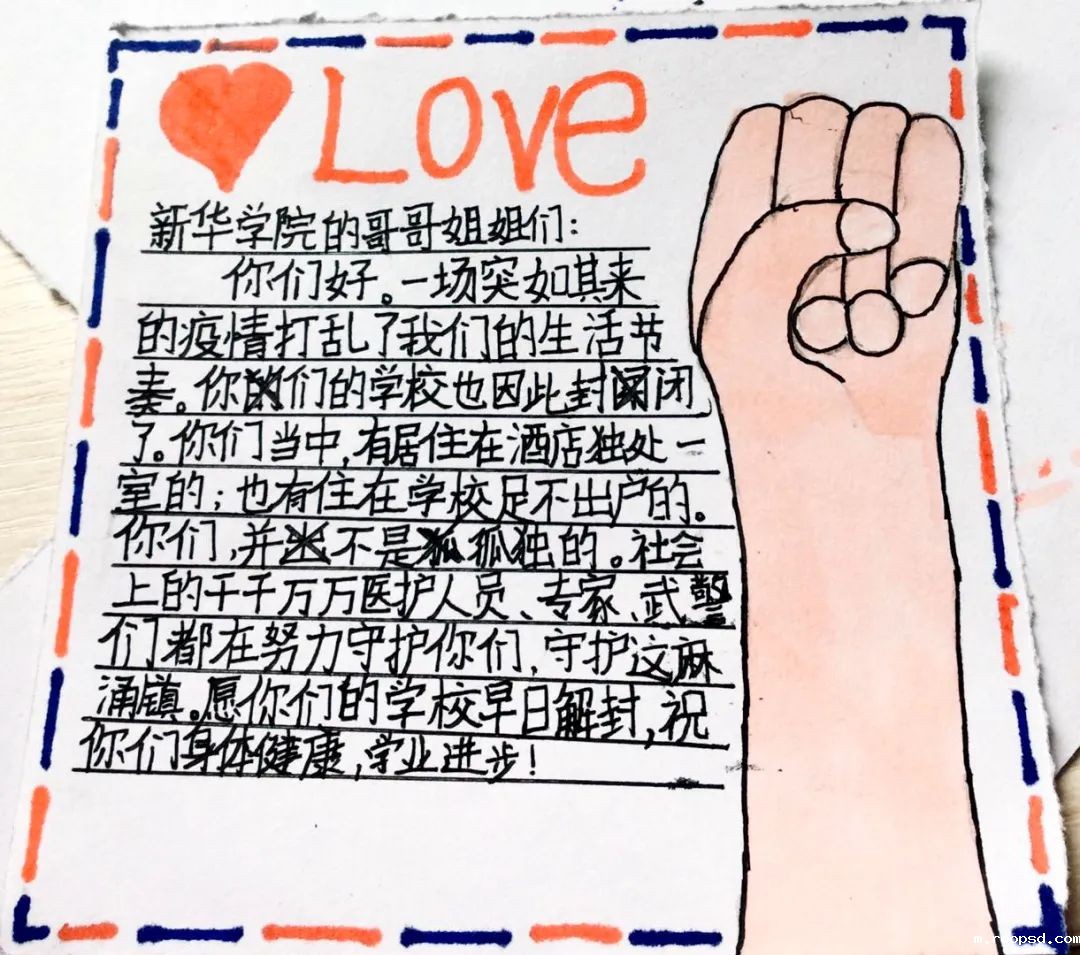 Love
新华学院的哥哥姐姐们：
你们好。一场突如其来
的疫情打乱了我们的生活节
奏。你们的学校也因此封闭
了。你们当中，有居住在酒店独处一
室的；也有住在学校足不出户的。
你们，并不是孤独的。社会
上的千千万万医护人员、专家、武警
们都在努力守护你们，守护这麻
涌镇。愿你们的学校早日解封，祝
你们身体健康，学业进步！